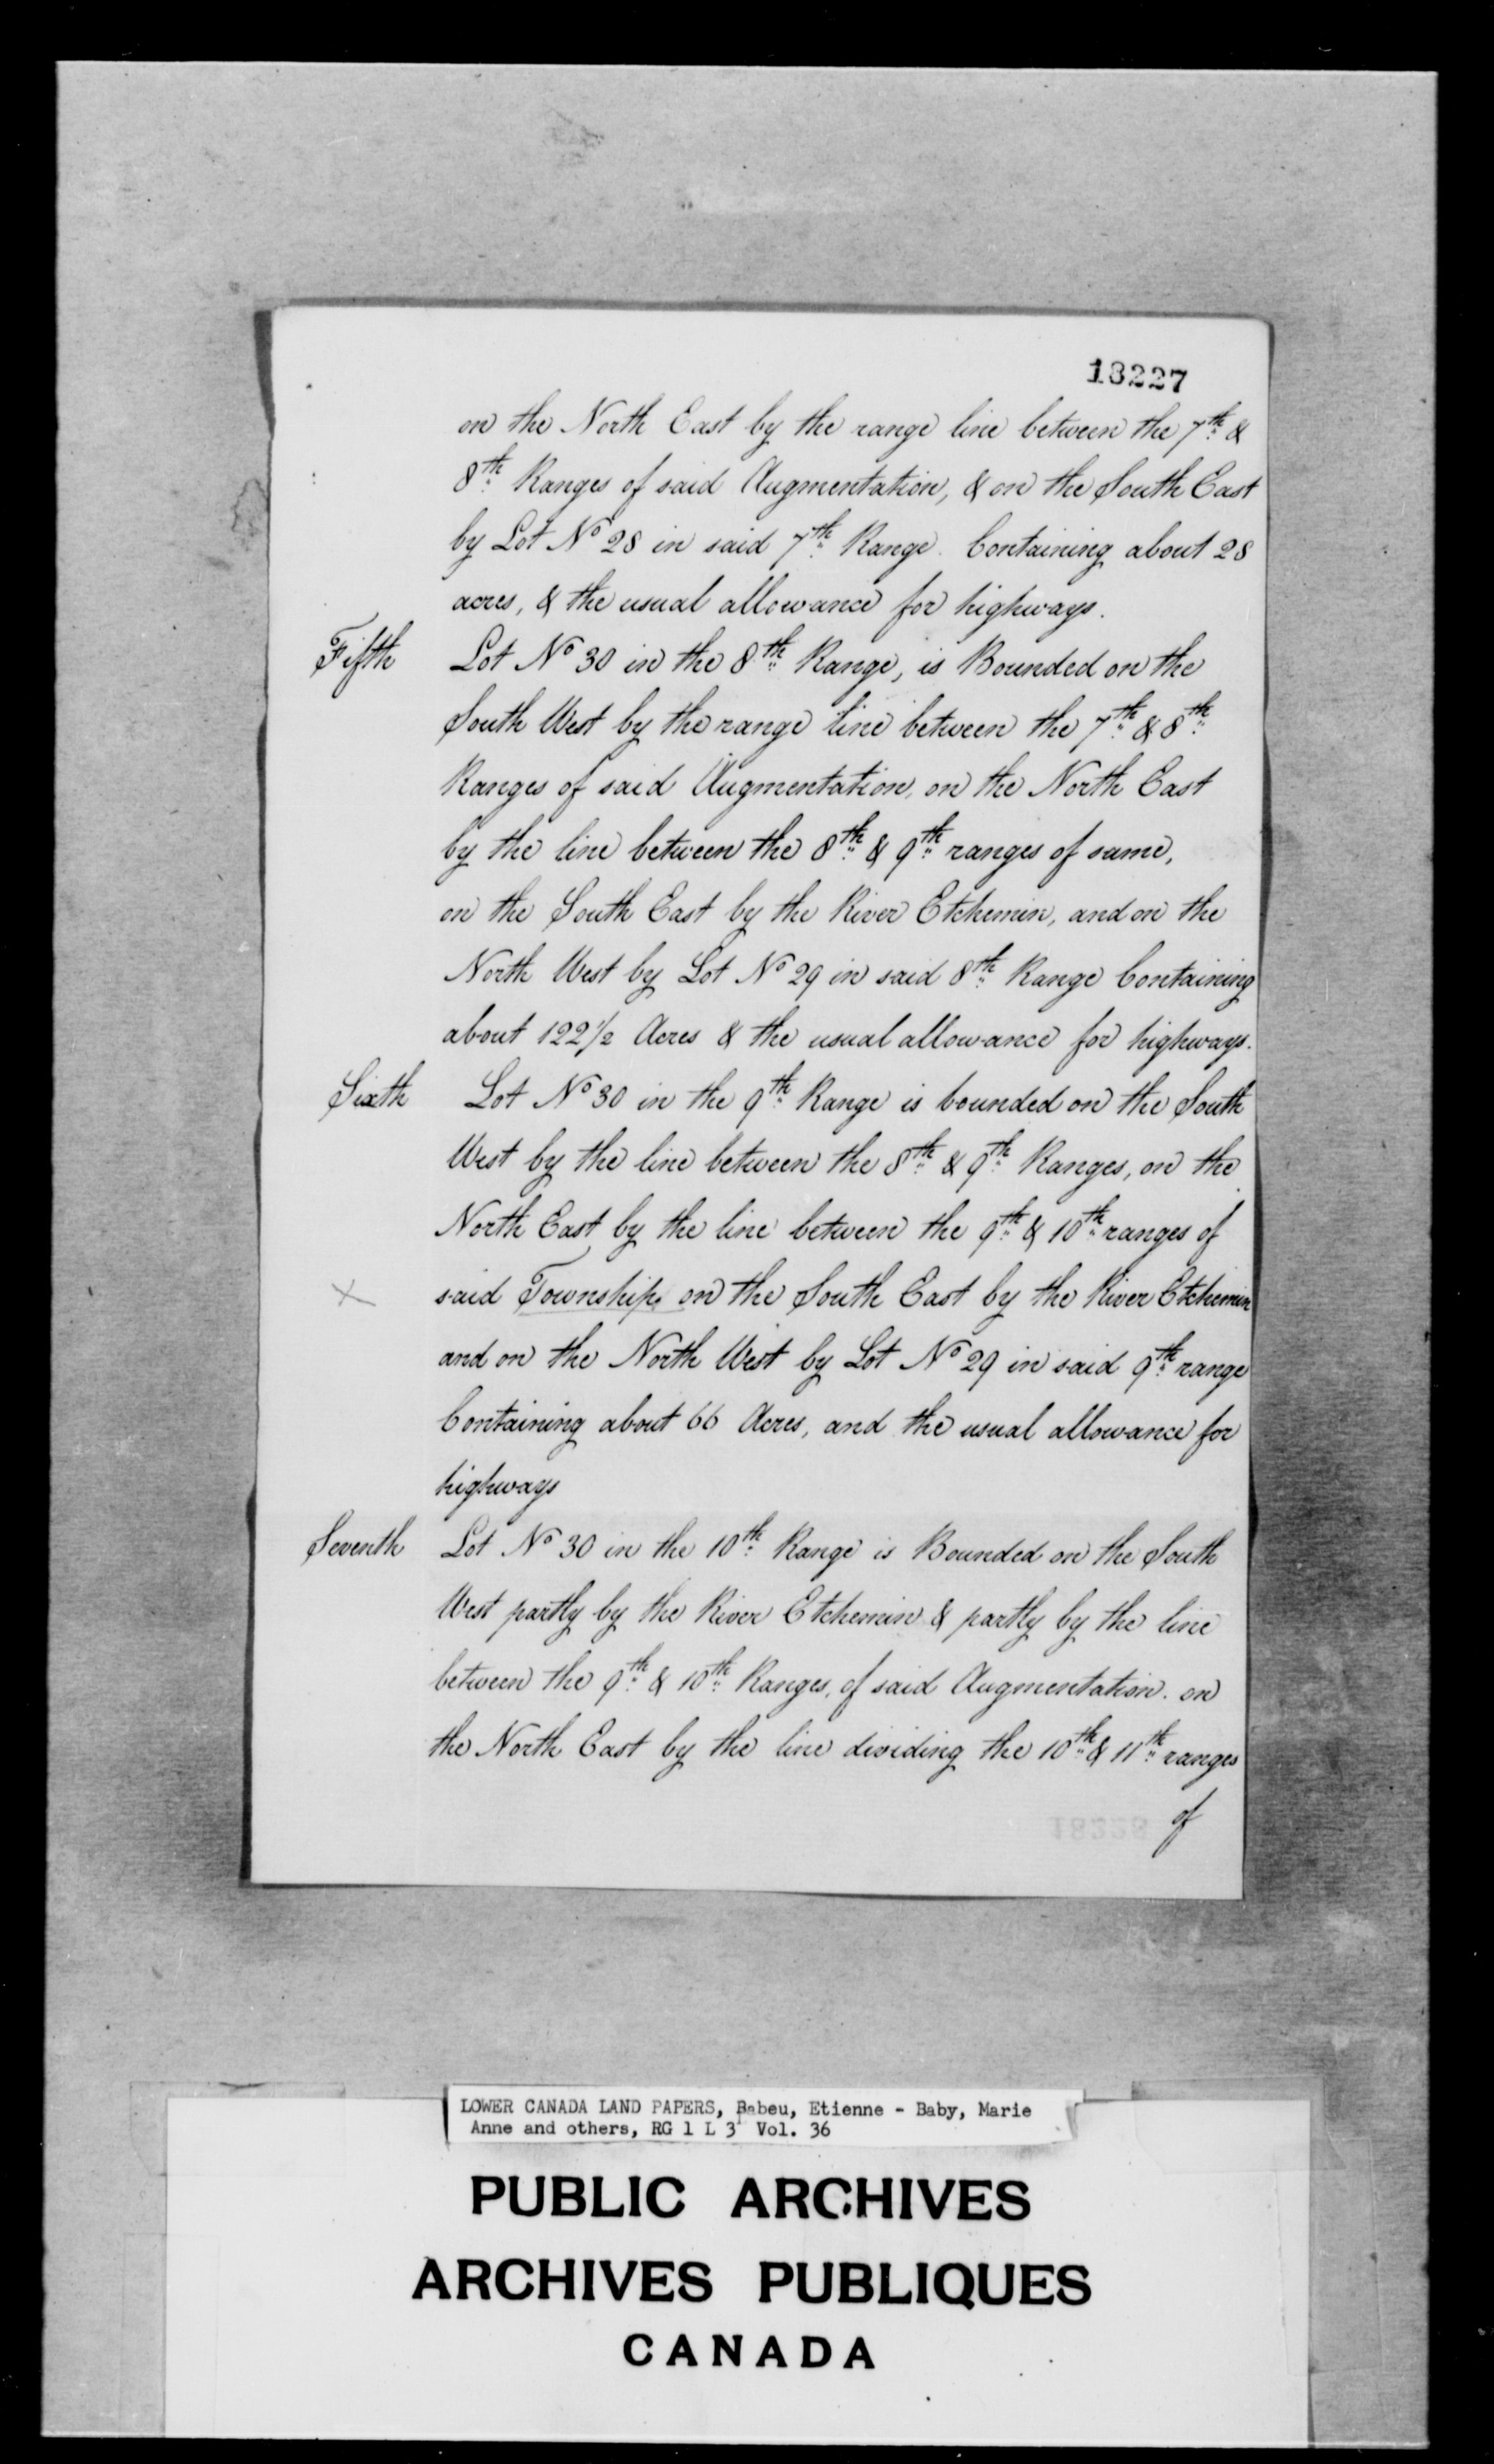 18227
on the North East by the range line between the 7th &
8th Ranges of said Augmentation, & on the South East
by Lot No 28 in said 7th Range. Containing about 28
acres, & the usual allowance for highways.
Fifth Lot No 30 in the 8th Range, is Bounded on the
South West by the range line between the 7th & 8th
Ranges of said Augmentation, on the North East
by the line between the 8th & 9th ranges of same,
on the South East by the River Etchemin, and on the
North West by Lot No 29 in said 8th Range Containing
about 122 1/2 Acres & the usual allowance for highways.
Sixth Lot No 30 in the 9th Range is bounded on the South
West by the line between the 8th & 9th Ranges, on the
North East by the line between the 9th & 10th ranges of
x said Township, on the South East by the River Etchemin
and on the North West by Lot No 29 in said 9th range
Containing about 66 Acres, and the usual allowance for
highways
Seventh Lot No 30 in the 10th Range is Bounded on the South
West partly by the River Etchemin & partly by the line
between the 9th & 10th Ranges, of said Augmentation. on
the North East by the line dividing the 10th & 11th ranges
of
18228
LOWER CANADA LAND PAPERS, Babeu, Etienne - Baby, Marie
Anne and others, RG 1 L 3 Vol. 36
PUBLIC ARCHIVES
ARCHIVES PUBLIQUES
CANADA